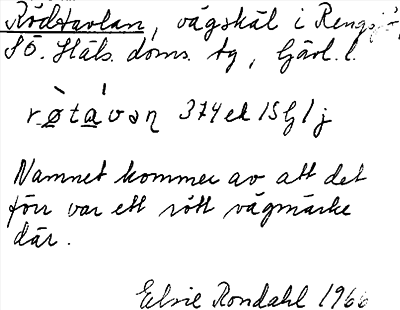 Rödtavlan, vägskäl i Rengsjö,
SÖ. Häls. doms. tg, Gävl. l.
rø̀távan 374 ek 15G1j
Namnet kommer av att det
förr var ett rött vägmärke
där.
Elsie Rondahl 1966